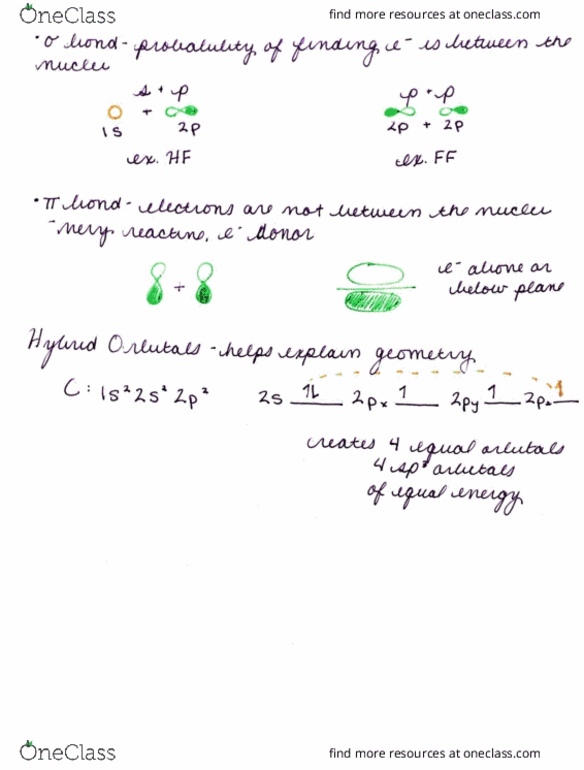 OneClass
find more resources at oneclass.com
• σ bond - probability of finding e⁻ is between the
nuclei
s + p
p + p
+
1s 2p
2p + 2p
ex. HF
ex. FF
• π bond - electrons are not between the nuclei
- very reactive, e⁻ donor
+
e⁻ above or
below plane
Hybrid Orbitals - helps explain geometry
C: 1s² 2s² 2p² 2s 1L 2pₓ 1 2py 1 2p 1
creates 4 equal orbitals
4 sp³ orbitals
of equal energy
OneClass
find more resources at oneclass.com